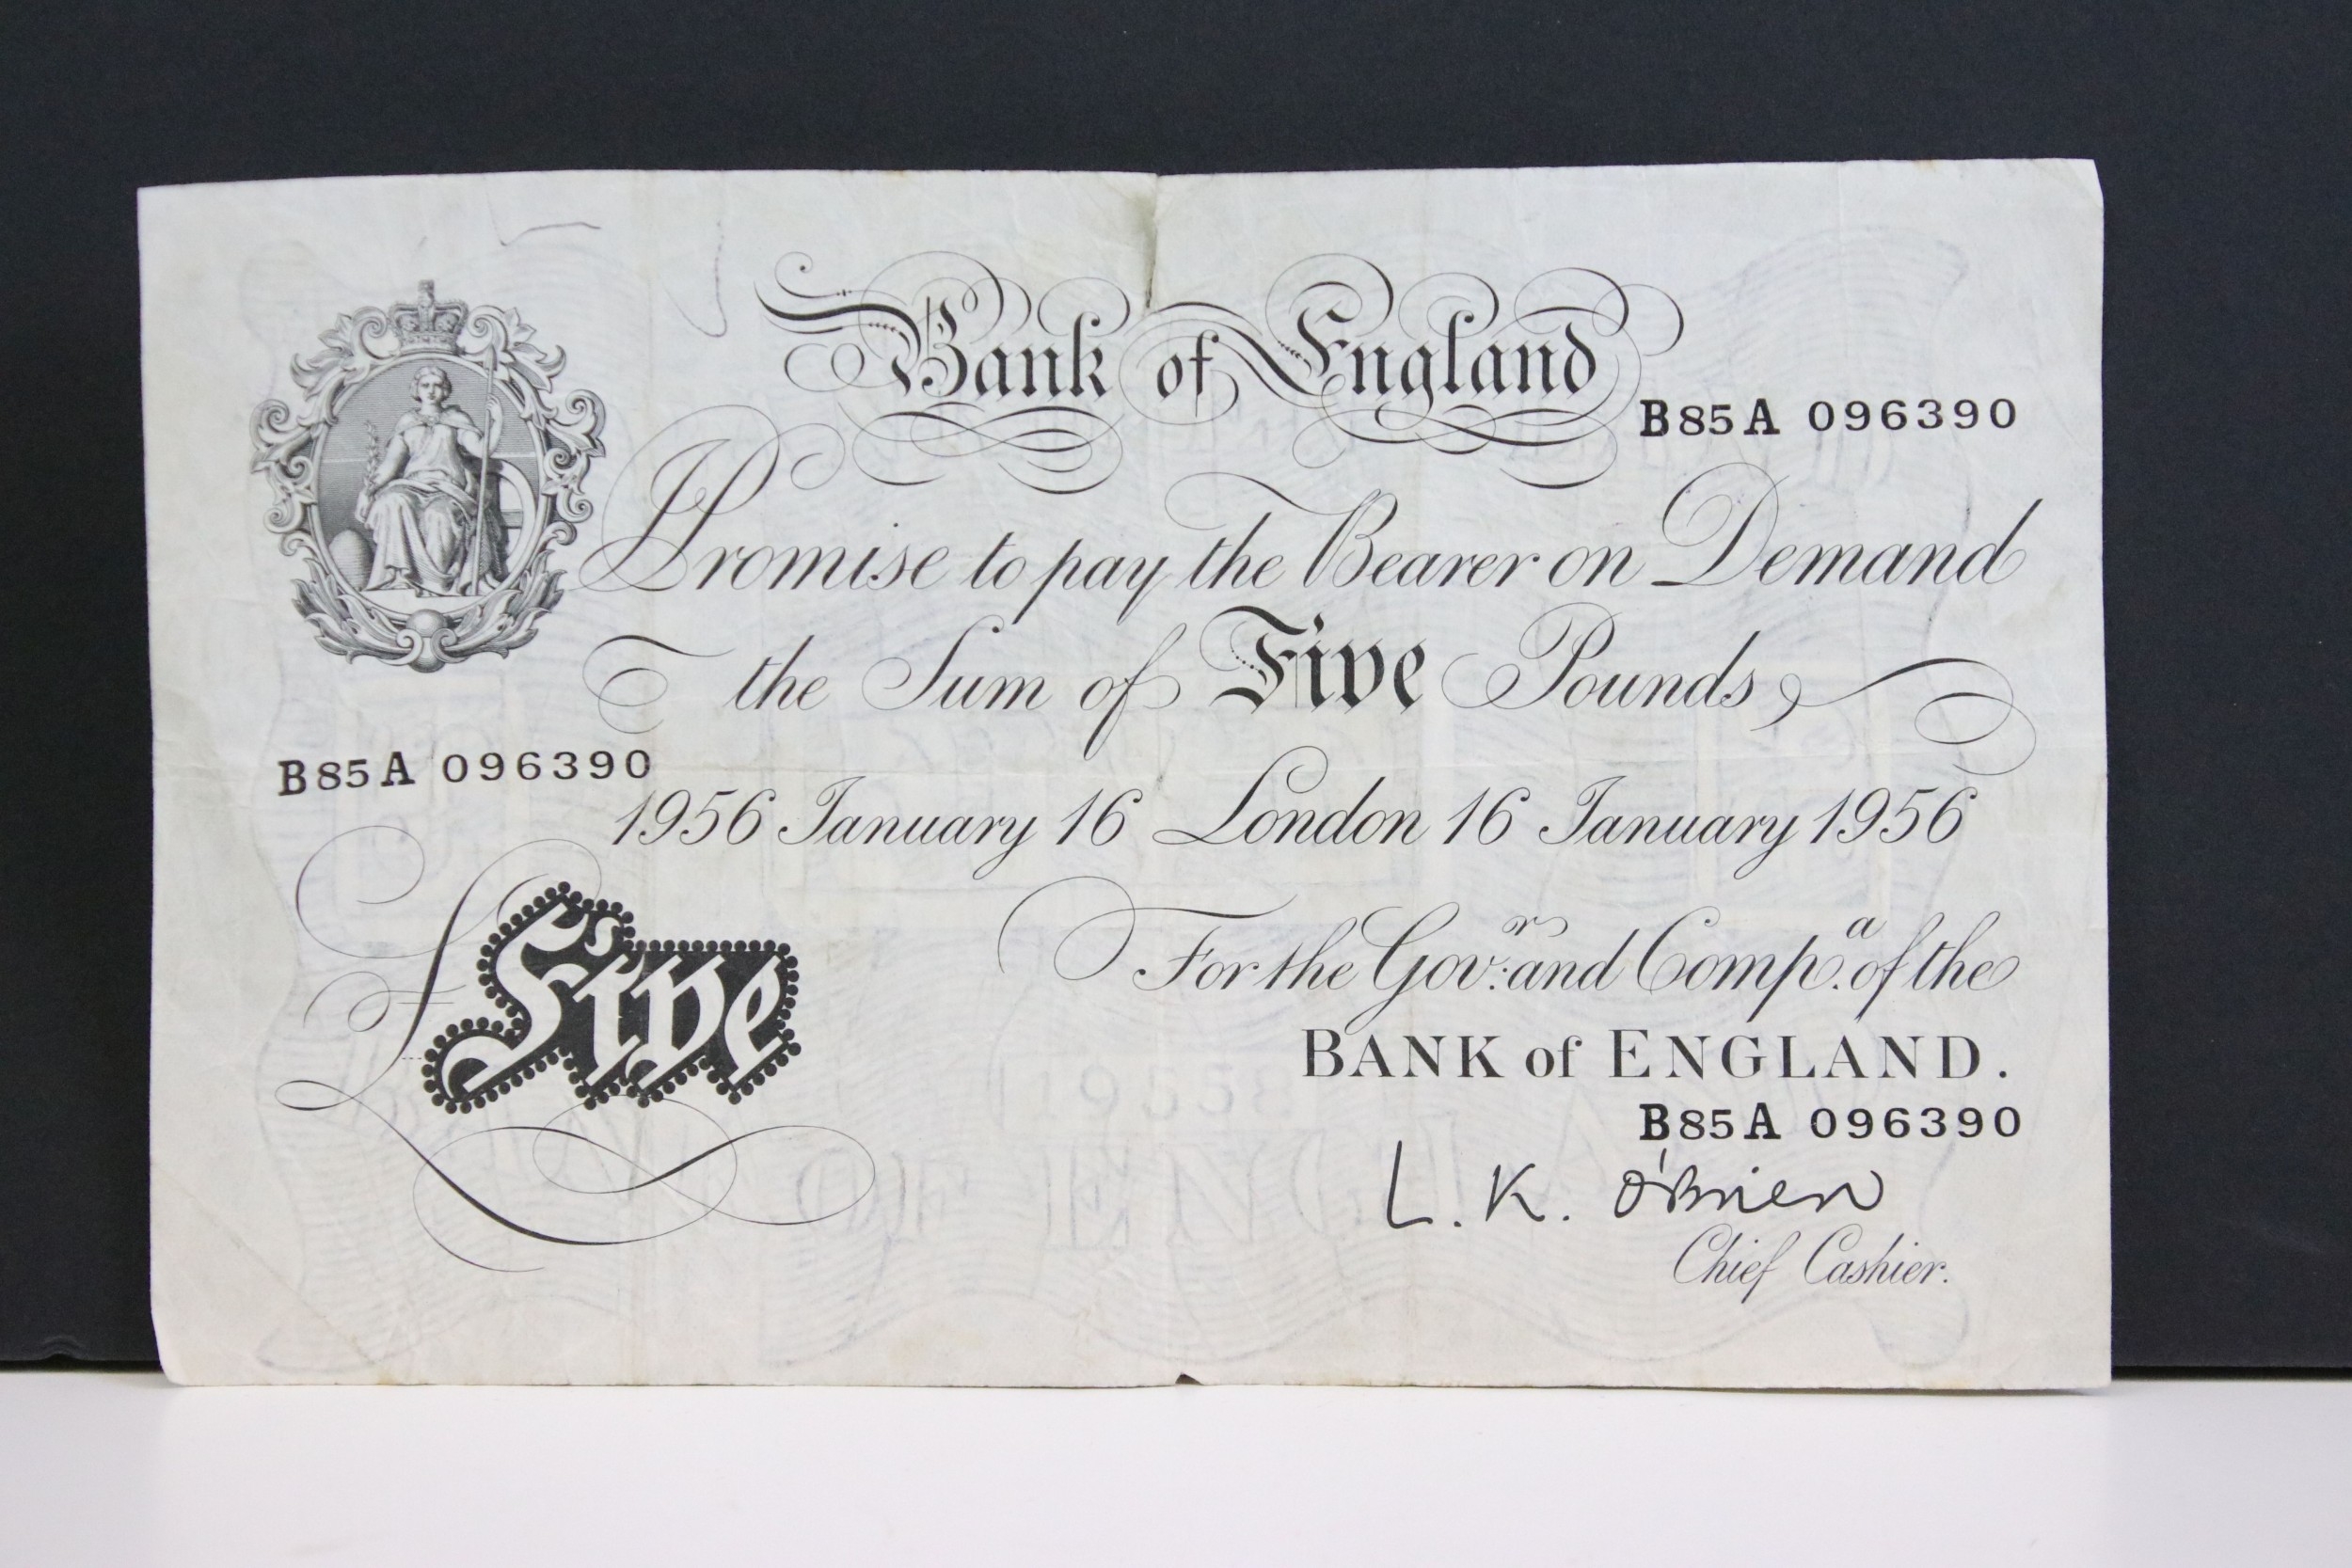 Bank of England
B85A 096390
I Promise to pay the Bearer on Demand
the Sum of Five Pounds
B85A 096390
1956 January 16 London 16 January 1956
For the Gov.r and Comp.a of the
BANK of ENGLAND.
£Five
B85A 096390
L. K. O'Brien
Chief Cashier.